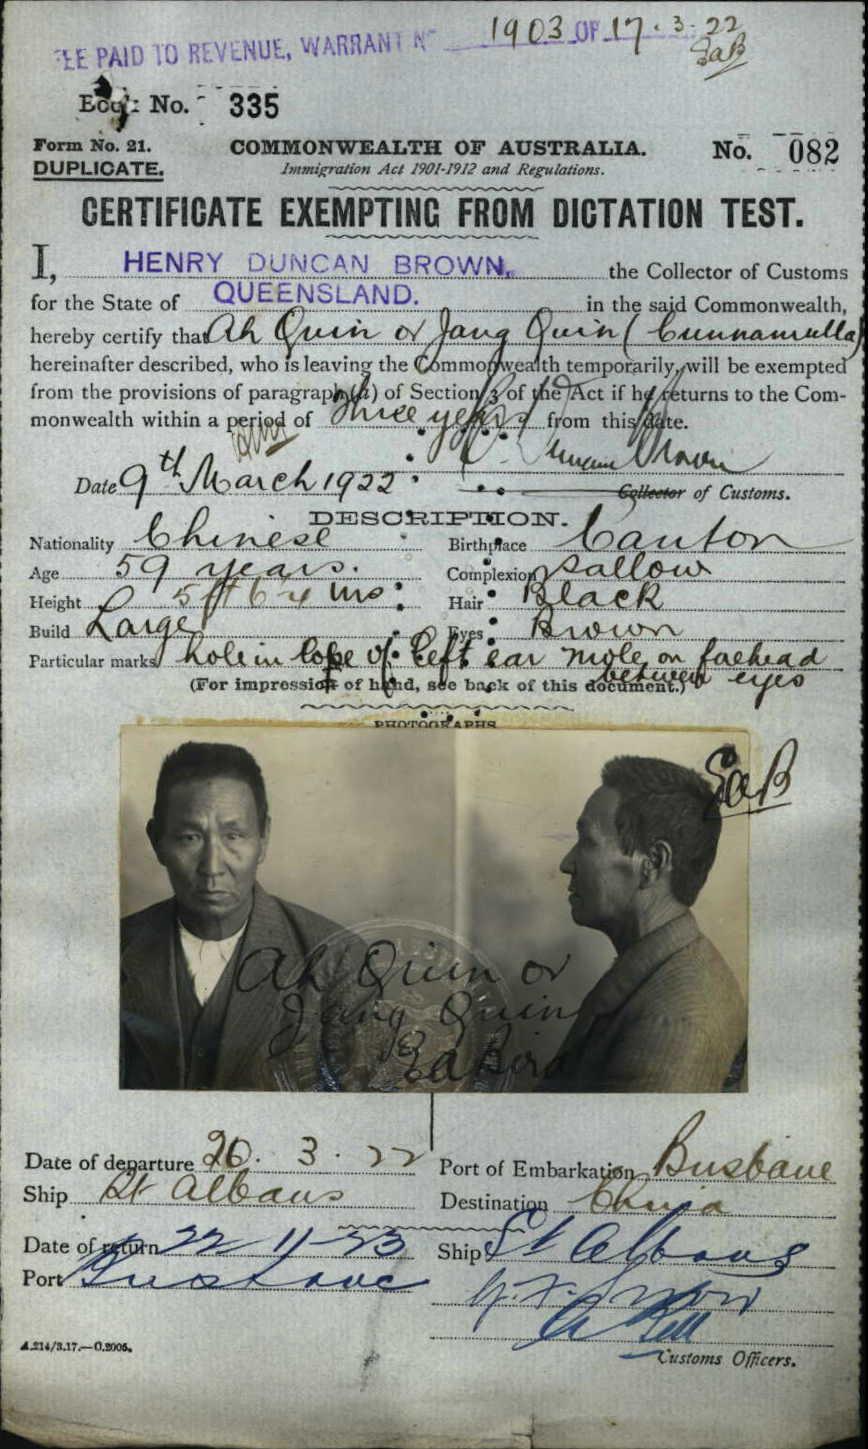 FEE PAID TO REVENUE, WARRANT No 1903 OF 17.3.22
EaB
Book No. 335
Form No. 21. COMMONWEALTH OF AUSTRALIA. No. 082
DUPLICATE. Immigration Act 1901-1912 and Regulations.
CERTIFICATE EXEMPTING FROM DICTATION TEST.
I, HENRY DUNCAN BROWN, the Collector of Customs
for the State of QUEENSLAND. in the said Commonwealth,
hereby certify that Ah Quin or Jang Quin (Cunnamulla)
hereinafter described, who is leaving the Commonwealth temporarily, will be exempted
from the provisions of paragraph (a) of Section 3 of the Act if he returns to the Com-
monwealth within a period of three years from this date.
H. Duncan Brown
Date 9th March 1922 Collector of Customs.
DESCRIPTION.
Nationality Chinese Birthplace Canton
Age 59 years. Complexion Sallow
Height 5 ft 6 ¼ ins Hair Black
Build Large Eyes Brown
Particular marks hole in lobe of left ear mole on forehead
between eyes
(For impression of hand, see back of this document.)
PHOTOGRAPHS
EaB
Ah Quin or
Jang Quin
Date of departure 26. 3. 22 Port of Embarkation Brisbane
Ship St Albans Destination China
Date of return 22-11-23 Ship St Albans
Port Brisbane
A.214/3.17.—C.2005.
Customs Officers.